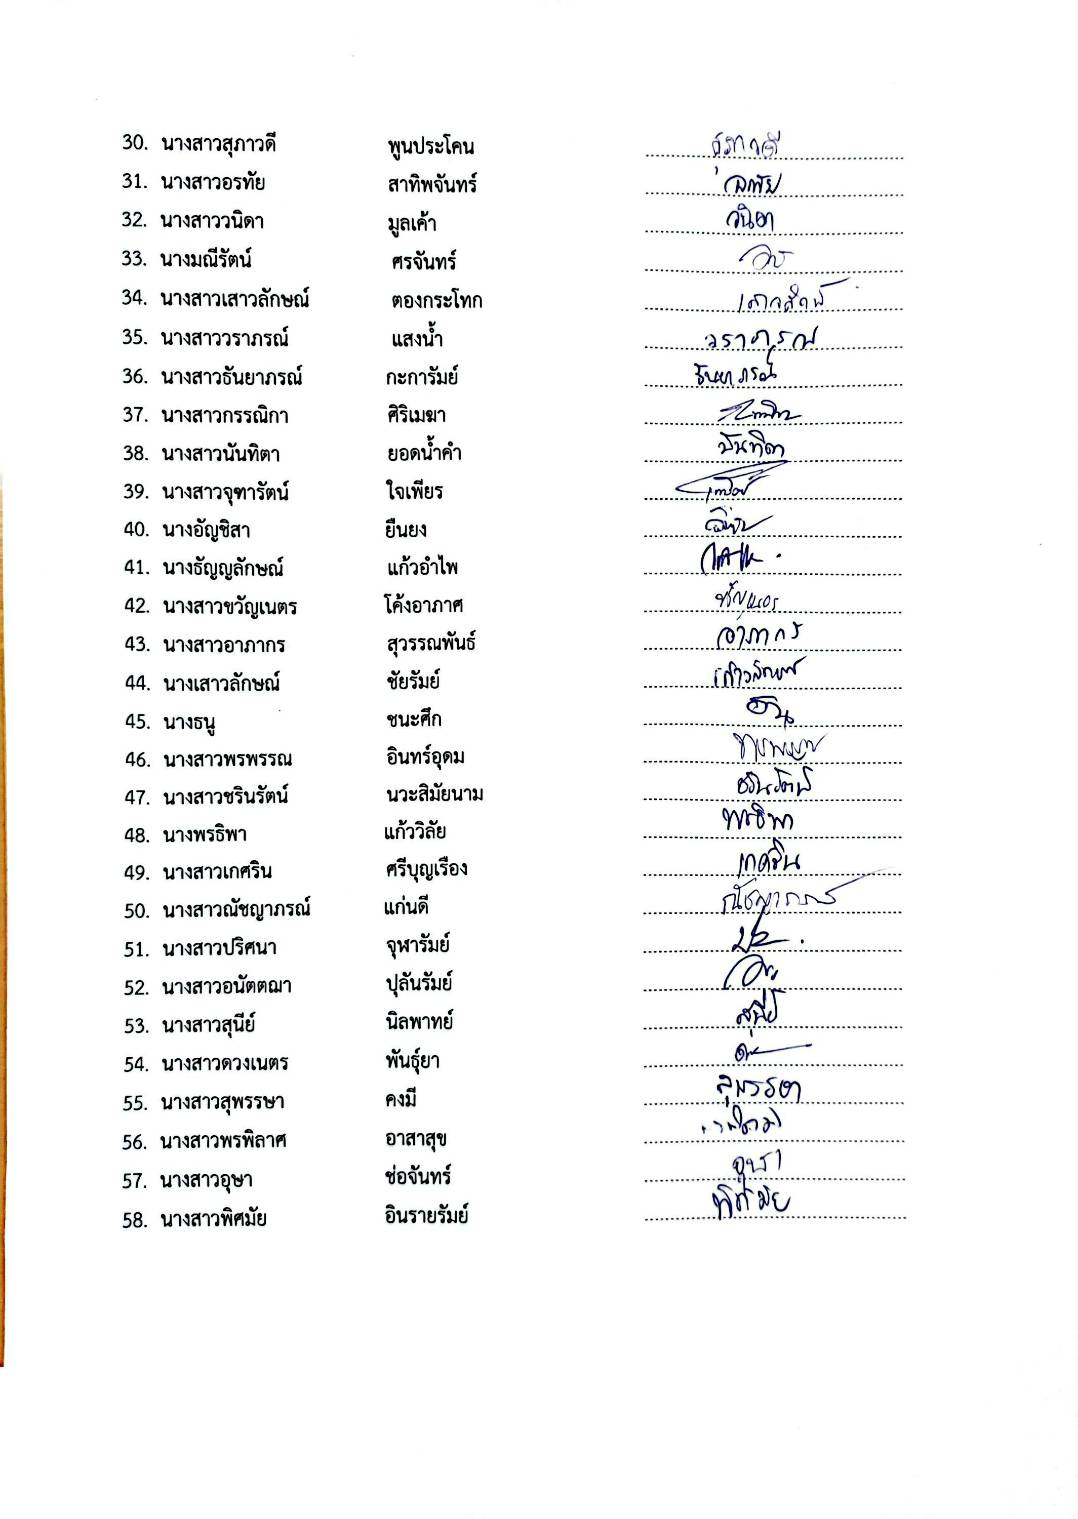 30. นางสาวสุภาวดี พูนประโคน สุภาวดี
31. นางสาวอรทัย สาทิพจันทร์ อรทัย
32. นางสาววนิดา มูลเค้า วนิดา
33. นางมณีรัตน์ ศรจันทร์
34. นางสาวเสาวลักษณ์ ตองกระโทก
35. นางสาววราภรณ์ แสงน้ำ วราภรณ์
36. นางสาวธันยาภรณ์ กะการัมย์ ธันยาภรณ์
37. นางสาวกรรณิกา ศิริเมฆา
38. นางสาวนันทิตา ยอดน้ำคำ นันทิตา
39. นางสาวจุฑารัตน์ ใจเพียร
40. นางอัญชิสา ยืนยง
41. นางธัญญลักษณ์ แก้วอำไพ
42. นางสาวขวัญเนตร โค้งอาภาศ ขวัญเนตร
43. นางสาวอาภากร สุวรรณพันธ์ อาภากร
44. นางเสาวลักษณ์ ชัยรัมย์ เสาวลักษณ์
45. นางธนู ชนะศึก ธนู
46. นางสาวพรพรรณ อินทร์อุดม
47. นางสาวชรินรัตน์ นวะสิมัยนาม ชรินรัตน์
48. นางพรธิพา แก้ววิลัย พรธิพา
49. นางสาวเกศริน ศรีบุญเรือง เกศริน
50. นางสาวณัชญาภรณ์ แก่นดี ณัชญาภรณ์
51. นางสาวปริศนา จุฬารัมย์
52. นางสาวอนัตตฌา ปุลันรัมย์
53. นางสาวสุนีย์ นิลพาทย์ สุนีย์
54. นางสาวดวงเนตร พันธุ์ยา
55. นางสาวสุพรรษา คงมี สุพรรษา
56. นางสาวพรพิลาศ อาสาสุข
57. นางสาวอุษา ช่อจันทร์ อุษา
58. นางสาวพิศมัย อินรายรัมย์ พิศมัย